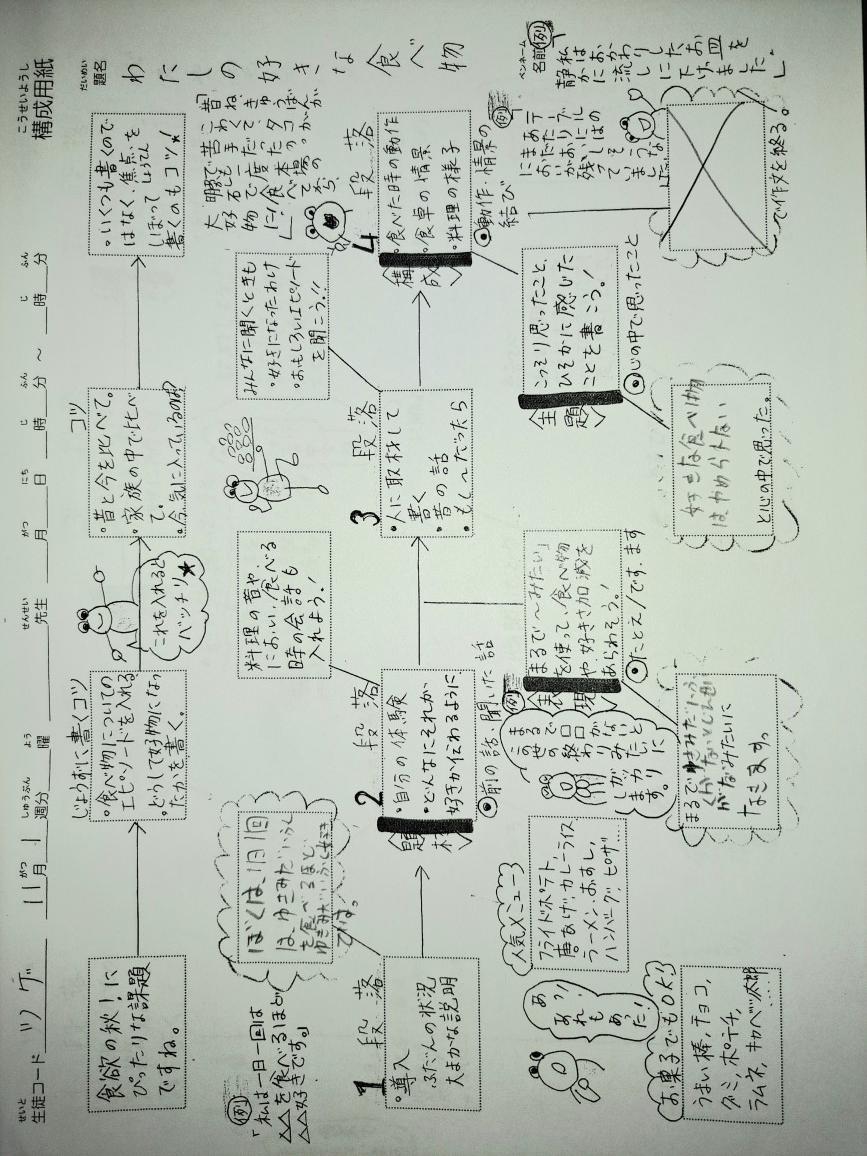 こうせいようし
構成用紙
だいめい
題名
わたしの好きな食べ物
ペンネーム
名前
せいと
生徒コード ツゲ
11月1週分
がつ しゅうぶん
曜
よう
先生
せんせい
月
がつ
日
にち
時
じ
分
ふん
～
時
じ
分
ふん
食欲の秋！に
ぴったりな課題
ですね。
じょうずに書くコツ
・食べ物についての
エピソードを入れる
・どうして好物になっ
たかを書く。
これを入れると
バッチリ★
コツ
・昔と今を比べて。
・家族の中で比べ
て。
・今、気に入っているのは？
・いくつも書くので
はなく、焦点を
しょうてん
しぼって
書くのもコツ！
例
「私は一日一回は
△△を食べるほど
△△好きです。」
ぼくは、1日1回
は、ゆきみだいふく
を食べるほど、
ゆきみだいふく好き
です。
料理の音や、
におい、食べる
時の会話も
入れよう！
みんなに聞くときも
・好きになったわけ
・おもしろいエピソード
を聞こう！！
1段落
・導入
ふだんの状況
大まかな説明
2段落
〈題材〉
・自分の体験
・どんなにそれが
好きか伝わるように
◉前の話・聞いた話
3段落
・人に取材して
書く
・昔の話
・もし～だったら
4段落
〈構成〉
・食べた時の動作
・食卓の情景
・料理の様子
◉動作・情景の
結び
人気メニュー
フライドポテト、
唐あげ、カレーライス
ラーメン、おすし、
ハンバーグ、ピザ…
〈表現〉
「まるで～みたい」
を使って、食べ物
や好きさ加減を
あらわそう！
◉たとえ／です、ます
例
〈主題〉
こっそり思ったこと、
ひそかに感じた
ことを書こう。！
◉心の中で思ったこと
例
テーブルには
例
私は
おかわりした、お皿を
静かに流しに下げました。」
あ、
あれ？！
も
あった！
お菓子でもOK！
うまい棒、チョコ、
グミ、ポテチ、
ラムネ、キャベツ太郎
……
まるでゆきみだいふ
みたいに
なきます。
好きな食べ物
はやめられない
と心の中で思った。
で作文を終る。